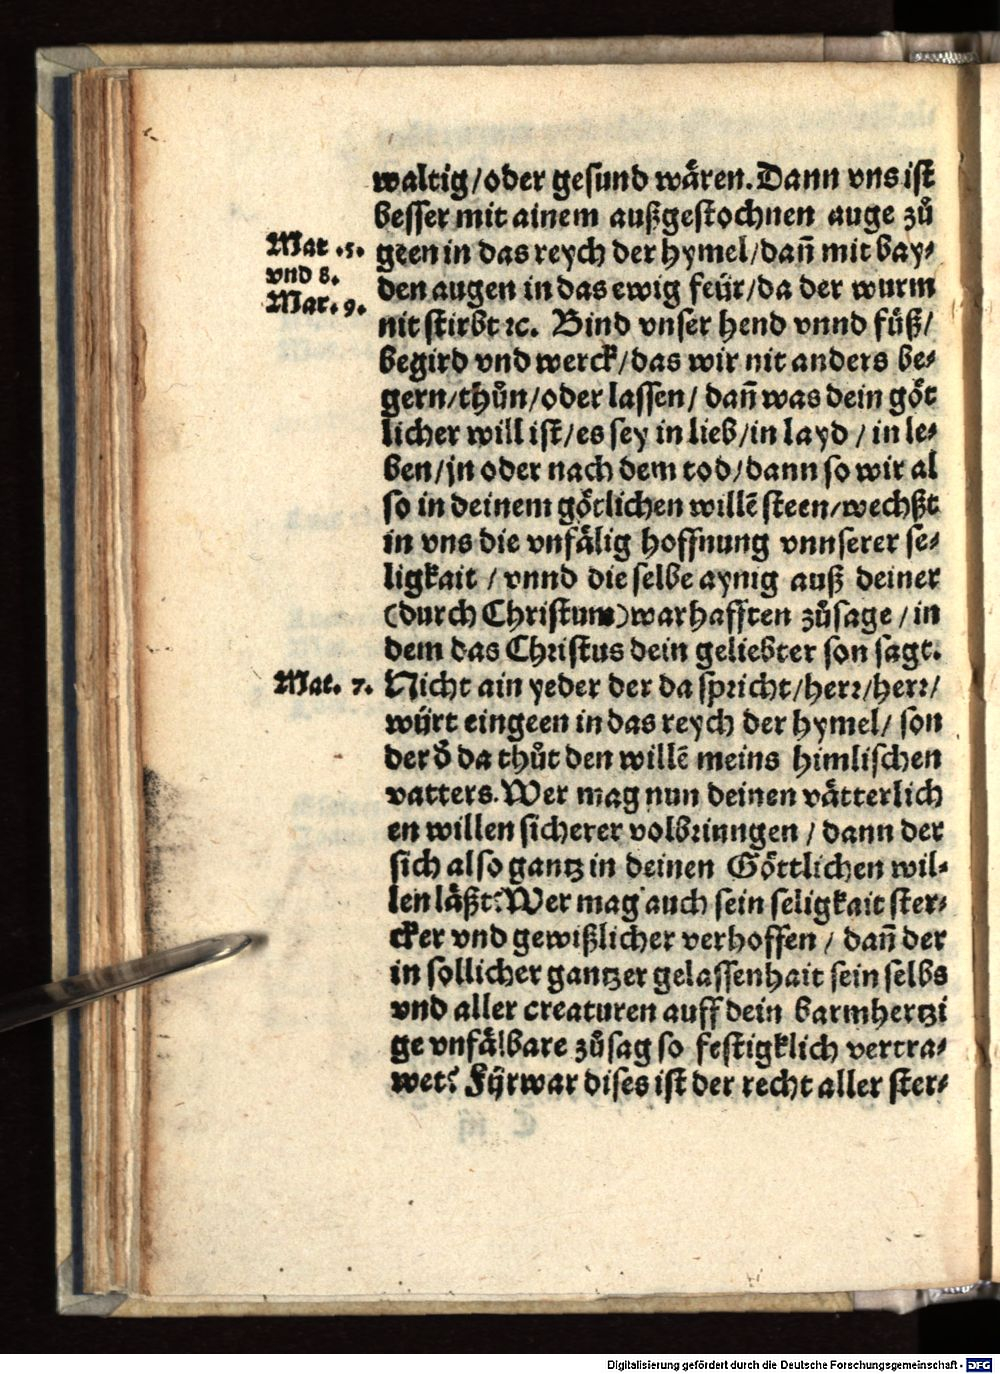 waltig/oder gesund wåren. Dann vns ist
besser mit ainem außgestochnen auge zů
Mat .5. geen in das reych der hymel/dañ mit bay⸗
vnd 8. den augen in das ewig feür/da der wurm
Mar. 9. nit stirbt ⁊c. Bind vnser hend vnnd füß/
begird vnd werck/das wir nit anders be⸗
gern/thůn/oder lassen/ dañ was dein göt
licher will ist/es sey in lieb/in layd / in le⸗
ben/jn oder nach dem tod/dann so wir al
so in deinem götlichen willē steen/wechßt
in vns die vnfälig hoffnung vnnserer se⸗
ligkait / vnnd die selbe aynig auß deiner
(durch Christum)warhafften zůsage / in
dem das Christus dein geliebter son sagt.
Mat. 7. Nicht ain yeder der da spricht/herr/herr/
würt eingeen in das reych der hymel/ son
der d̄ da thůt den willē meins himlischen
vatters. Wer mag nun deinen vätterlich
en willen sicherer volbrinngen / dann der
sich also gantz in deinen Göttlichen wil⸗
len läßt? Wer mag auch sein seligkait ster⸗
cker vnd gewißlicher verhoffen / dañ der
in sollicher gantzer gelassenhait sein selbs
vnd aller creaturen auff dein barmhertzi
ge vnfälbare zůsag so festigklich vertra⸗
wet? Fürwar dises ist der recht aller ster⸗
Digitalisierung gefördert durch die Deutsche Forschungsgemeinschaft - DFG